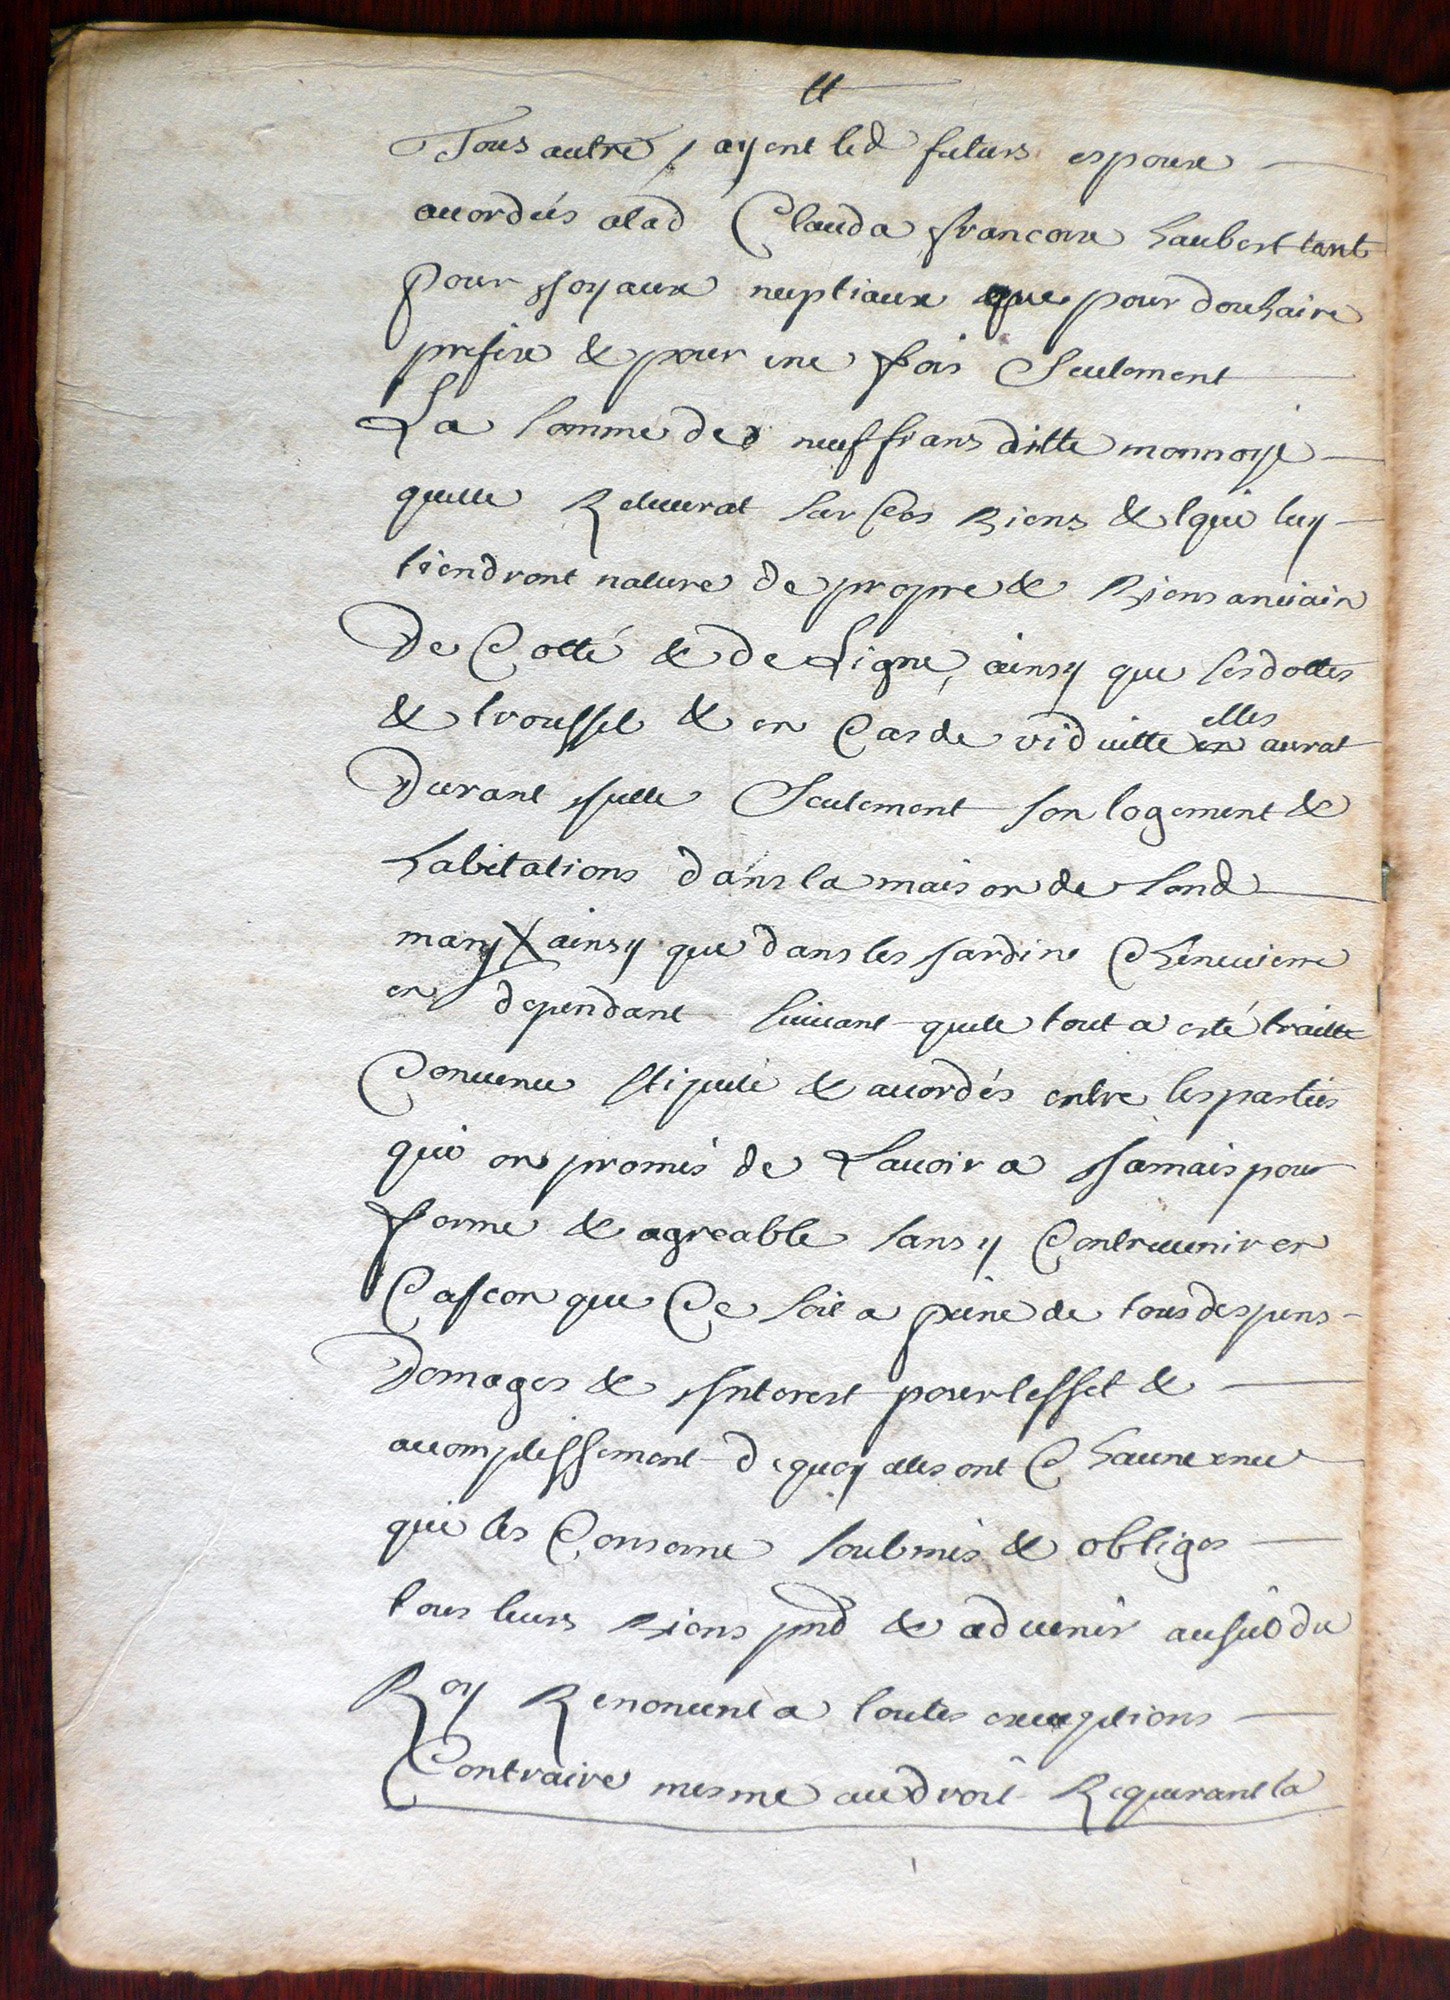 Tous autre, ayent led futurs espoux
acordés alad Clauda francoise haubert tant
pour joyaux nuptiaux que pour douhaire
prefixe & pour une fois seulement
La somme de neuf frans ditte monnoye
quelle Releverat sur ces Biens & qui luy
tiendront nature de propre & Biens anciain
De Cotté & de Ligne, ainsy que ses dottes
& troussel & en Cas de viduitte elles aurat
Durant icelle seulement son logement &
habitations dans la maison de sond
mary X ainsy que dans les jardins Cheneviere
en dependant suivant quele tout a esté traitte
Convenu stipulé & acordés entre les parties
qui on promis de Lavoir a jamais pour
ferme & agreable sans y Contrevenir en
Cas con que Ce soit a peine de tous despens
Domages & Interest pour lesset &
acomplissement dequoy elles ont Chacune en ce
qui les Conserne soubmis & obliges
tous leurs Biens pnd & advenir au sçel du
Roy Renoncent a toutes exceptions
Contraire mesme au droit Requerant la